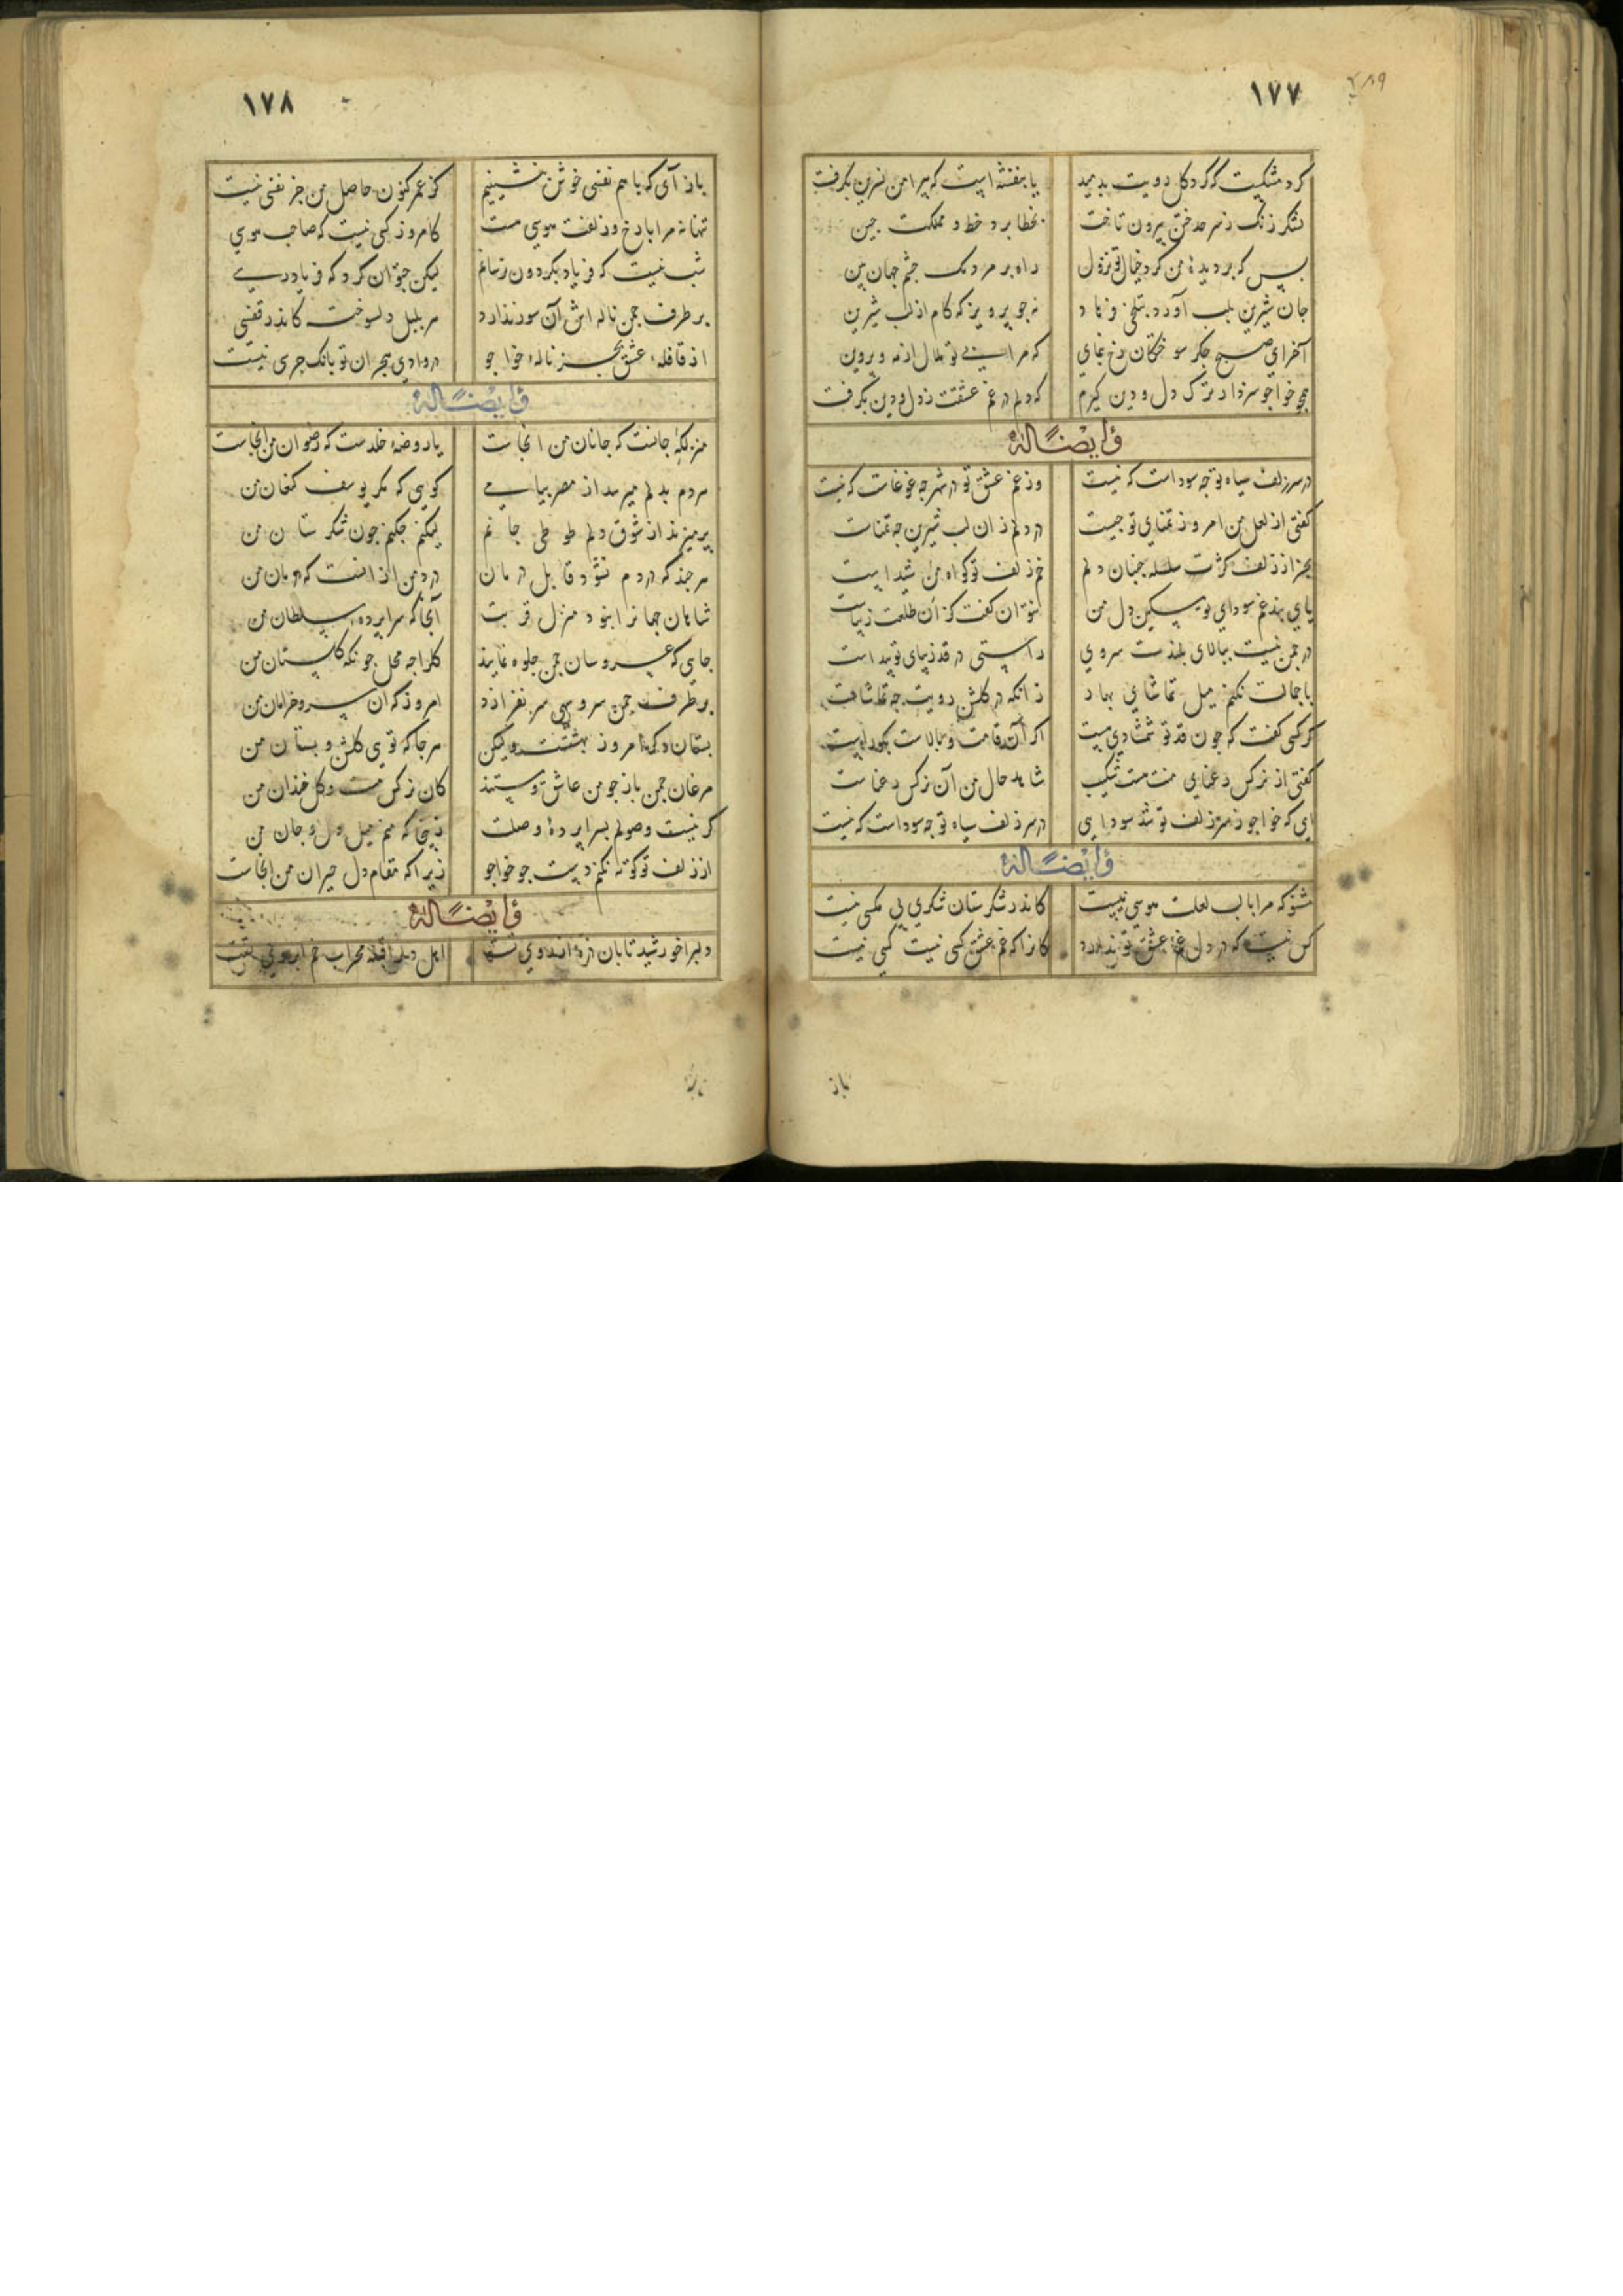 ١٧٧
گرد مشکیست که گرد گل رویت بدمید یا بنفشه است که پیرامن نسرین بگرفت
لشکر زنگ ز سرحد ختن بیرون تاخت بخطا برد خط و مملکت چین
بسی که بر دیده من کرد خیال تو نزول راه بر مردمک چشم جهان بین
جان شیرین بلب آورد بتلخی فرهاد نه چو پرویز که کام از لب شیرین
آخر ای صبح جگر سوختگان رخ بنمای که مرا بی تو ملال از مه و پروین
خواجو سزد ار ترک دل و دین گیرم که دلم در غم عشقت ز دل و دین بگرفت
و ایضاً له
در سر زلف سیاه تو چه سوداست که نیست وز غم عشق تو در شهر چه غوغاست که نیست
گفتی از لعل من امروز تمنای تو چیست در دلم زان لب شیرین چه تمناست
بجز از زلف کژت سلسله جنبان دلم خم زلف تو گواه من شیداست
پای بند غم سودای تو مسکین دل من نتوان گفت کزان طلعت زیباست
در چمن نیست ببالای بلندت سروی راستی در قد زیبای تو پیداست
با جمالت نکنم میل تماشای بهار زانکه در گلشن رویت چه تماشاست
گر کسی گفت که چون قد تو شمشادی نیست اگر آن قامت و بالاست
گفتی از نرگس رعنای منت هست شکیب شاهد حال من آن نرگس رعناست
ای که خواجو ز سر زلف تو شد سودایی در سر زلف سیاه تو چه سوداست که نیست
و ایضاً له
مشنو که مرا با لب لعلت هوسی نیست کاندر شکرستان شکری بی مگسی نیست
کس نیست که در دل غم عشق تو ندارد کانرا که غم عشق کسی نیست کسی نیست
باز
١٧٨
باز آی که با هم نفسی خوش بنشینیم کز عمر کنون حاصل من جز نفسی نیست
تنها نه مرا با رخ و زلفت هوسی هست کامروز کسی نیست که صاحب هوسی
شب نیست که فریاد بگردون نرسانم لیکن چتوان کرد که فریادرسی
بر طرف چمن ناله اش آن سوز ندارد هر بلبل دلسوخت کاندر قفسی
از قافله عشق بجز ناله خواجو در وادی هجران تو بانگ جرسی نیست
و ایضاً له
منزلگه جانست که جانان من آنجاست یا روضه خلدست که رضوان من آنجاست
هر دم بدلم میرسد از مصر پیامی گویی که مگر یوسف کنعان من
پر میزند از شوق دلم طوطی جانم لیکن چکنم چون شکرستان من
هر چند که دردم نشود قابل درمان درد من از آنست که درمان من
شاهان جهانرا نبود منزل قربت آنجا که سراپرده سلطان من
جایی که عروسان چمن جلوه نمایند گلرا چه محل چونکه گلستان من
بر طرف چمن سرو سهی سر بفرازد امروز که آن سرو خرامان من
بستان دگر امروز بهشتست ولیکن هرجا که تویی گلشن و بستان من
مرغان چمن باز چو من عاشق و مستند کان نرگس مست و گل خندان من
گر نیست وصولم بسراپرده وصلت زینجا که منم میل دل و جان من
از زلف تو کوته نکنم دست چو خواجو زیرا که مقام دل حیران من آنجاست
و ایضاً له
دلبرا خورشید تابان ذره از روی تست اهل دل را قبله محراب خم ابروی تست